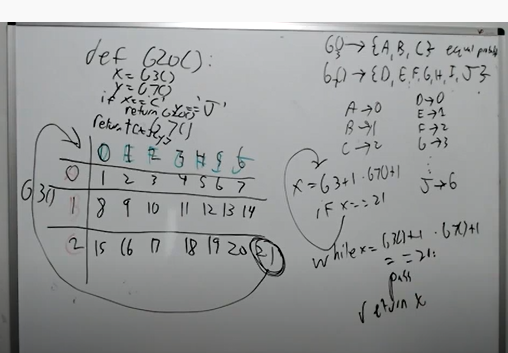 def G20():
x = G3()
y = G7()
if x=='C' y=='J'
return G20()
return
G3()
0 1 2 3 4 5 6
0 1 2 3 4 5 6 7
1 8 9 10 11 12 13 14
2 15 16 17 18 19 20 21
G() → {A, B, C} equal
G() → {D, E, F, G, H, I, J}
A → 0
B → 1
C → 2
D → 0
E → 1
F → 2
G → 3
⋮
J → 6
x = G3+1 · G7()+1
if x == 21
while x = G3()+1 · G7()+1
== 21:
pass
return x